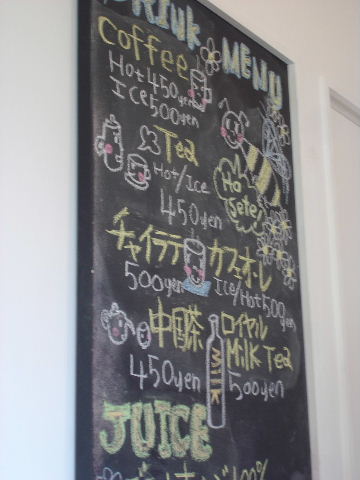 DRINK MENU
Coffee
Hot 450yen
Ice 500yen
Tea
Hot/Ice
450yen
チャイラテ
500yen
カフェオーレ
Ice/Hot 500yen
中国茶
450yen
ロイヤル
Milk Tea
500yen
MILK
JUICE
100%